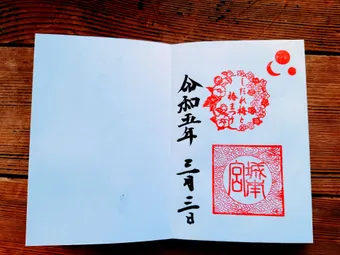 しだれ梅と
椿まつり
城南
宮
令和五年
三月三日